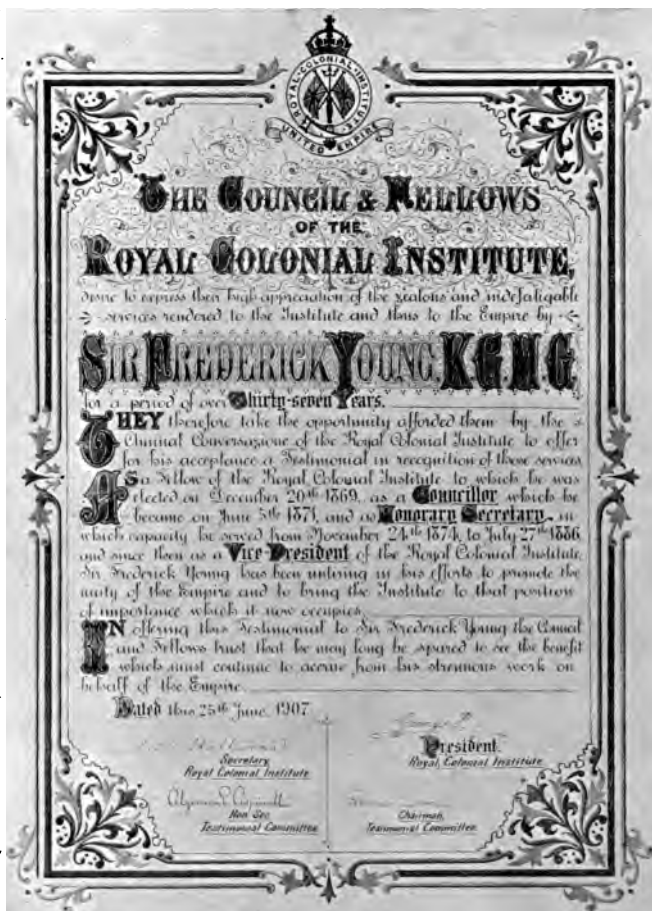 ROYAL · COLONIAL · INSTITUTE
UNITED EMPIRE
THE COUNCIL & FELLOWS
OF THE
ROYAL COLONIAL INSTITUTE,
desire to express their high appreciation of the zealous and indefatigable
services rendered to the Institute and thus to the Empire by
SIR FREDERICK YOUNG, K.C.M.G.
for a period of over Thirty-seven Years.
THEY therefore take the opportunity afforded them by the
Annual Conversazione of the Royal Colonial Institute to offer
for his acceptance a Testimonial in recognition of those services.
AS a Fellow of the Royal Colonial Institute to which he was
elected on December 20th 1869, as a Councillor which he
became on June 5th 1871, and as Honorary Secretary in
which capacity he served from November 24th 1874, to July 27th 1886
and since then as a Vice-President of the Royal Colonial Institute,
Sir Frederick Young has been untiring in his efforts to promote the
unity of the Empire and to bring the Institute to that position
of importance which it now occupies.
IN offering this Testimonial to Sir Frederick Young the Council
and Fellows trust that he may long be spared to see the benefit
which must continue to accrue from his strenuous work on
behalf of the Empire.
Dated this 25th June, 1907.
George P.
President,
Royal Colonial Institute
Secretary,
Royal Colonial Institute
Algernon E. Aspinall
Hon Sec.
Testimonial Committee.
Chairman,
Testimonial Committee.